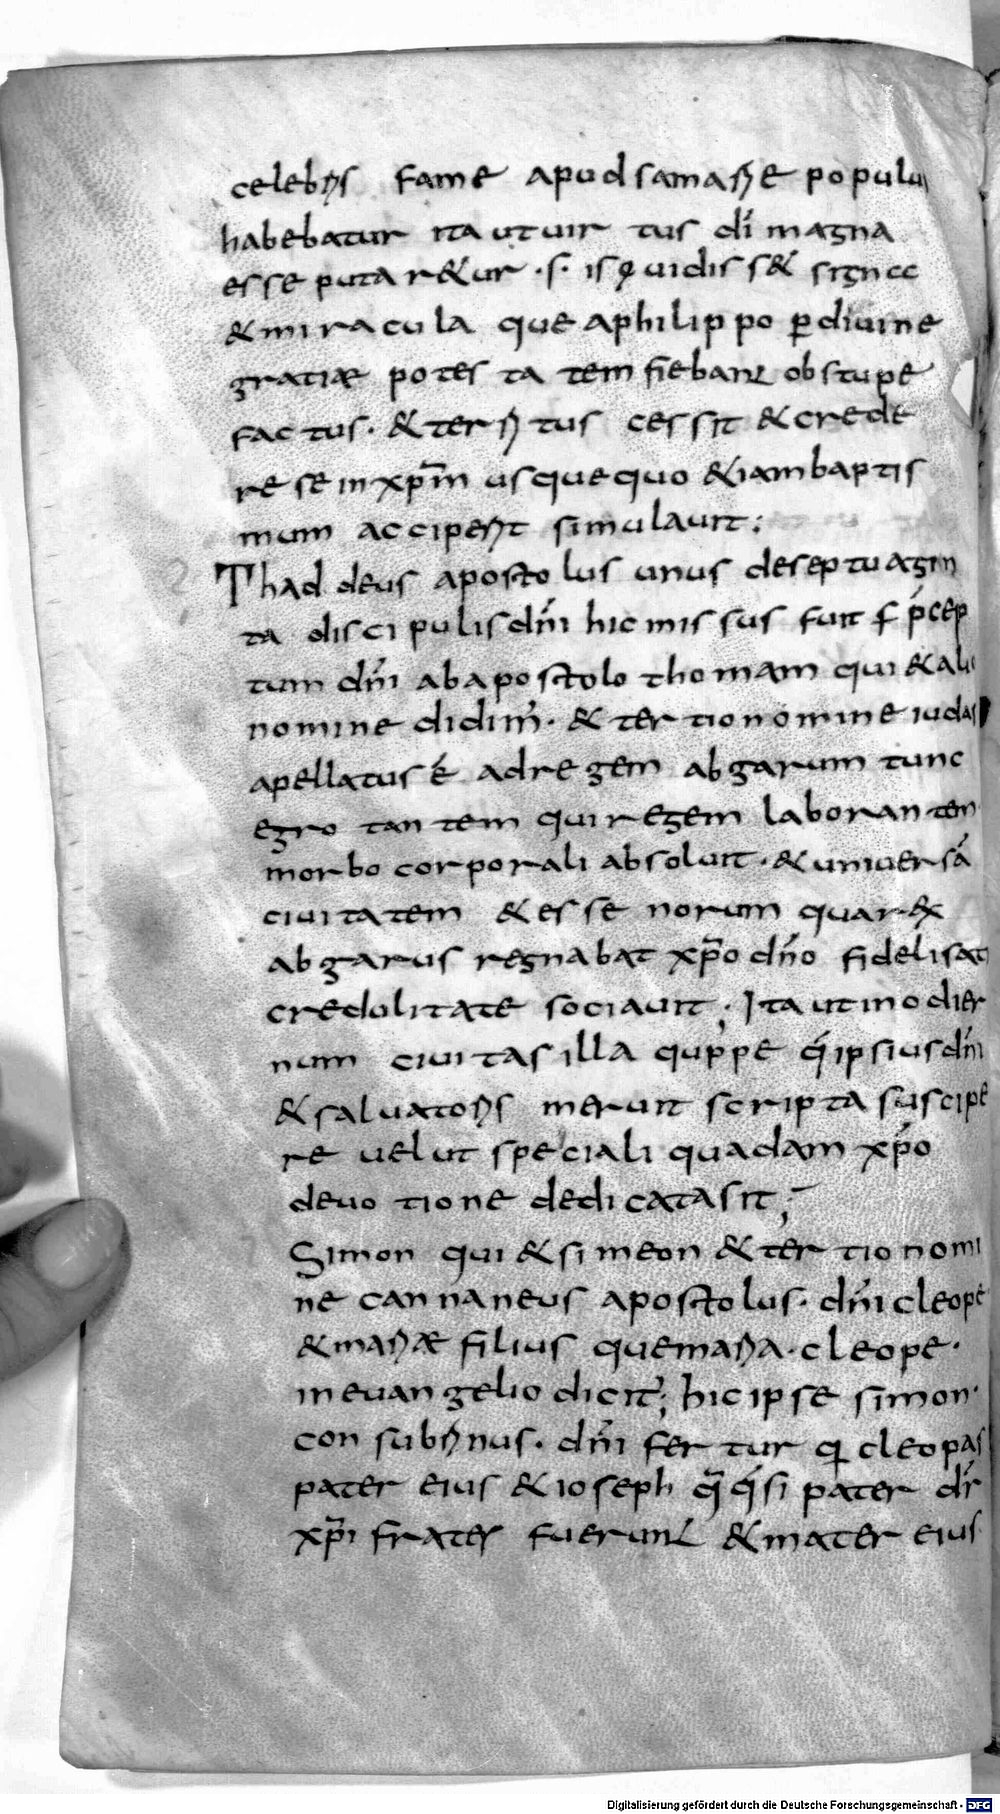 celebris fame apud samarie populū
habebatur ita ut uirtus dī magna
esse putar&ur · s · is quidis s& signa
& miracula que a philippo ꝑ diuine
gratiæ potestatem fiebant obstupe
factus · & territus cessit & crede
re se in xp̄m usquequo & iam baptis
mum acciperit simulauit :
Thaddeus apostolus unus de septuagin
ta discipulis dn̄i hic missus fuit s p̄cep
tum dn̄i ab apostolo thomam qui & alio
nomine didim' · & tertio nomine iudas
apellatus ē ad regem abgarum tunc
egrotantem qui regem laborantem
morbo corporali absoluit · & uniuersā
ciuitatem & essenorum quar rex
abgarus regnabat xp̄o dn̄o fidelis at
credulitate sociauit ; Ita ut in odier
num ciuitas illa quppe q̄ ipsius dn̄i
& saluatoris meruit scripta suscipe
re uelut speciali quadam xp̄o
deuotione dedicata sit ;
Simon qui & simeon & tertio nomi
ne cannaneus apostolus · dn̄i cleope
& mariæ filius que maria · cleope ·
in euangelio dicit' ; hic ipse simon ·
consubrinus · dn̄i fertur q cleopas
pater eius & ioseph q̄ q̄si pater dn̄i
xp̄i frater fuerunt & mater eius